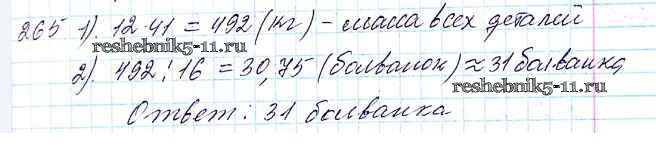 265 1). 12·41 = 492 (кг) - масса всех деталей
reshebnik5-11.ru
2). 492 : 16 = 30,75 (болванок) ≈ 31 болванка
reshebnik5-11.ru
Ответ: 31 болванка